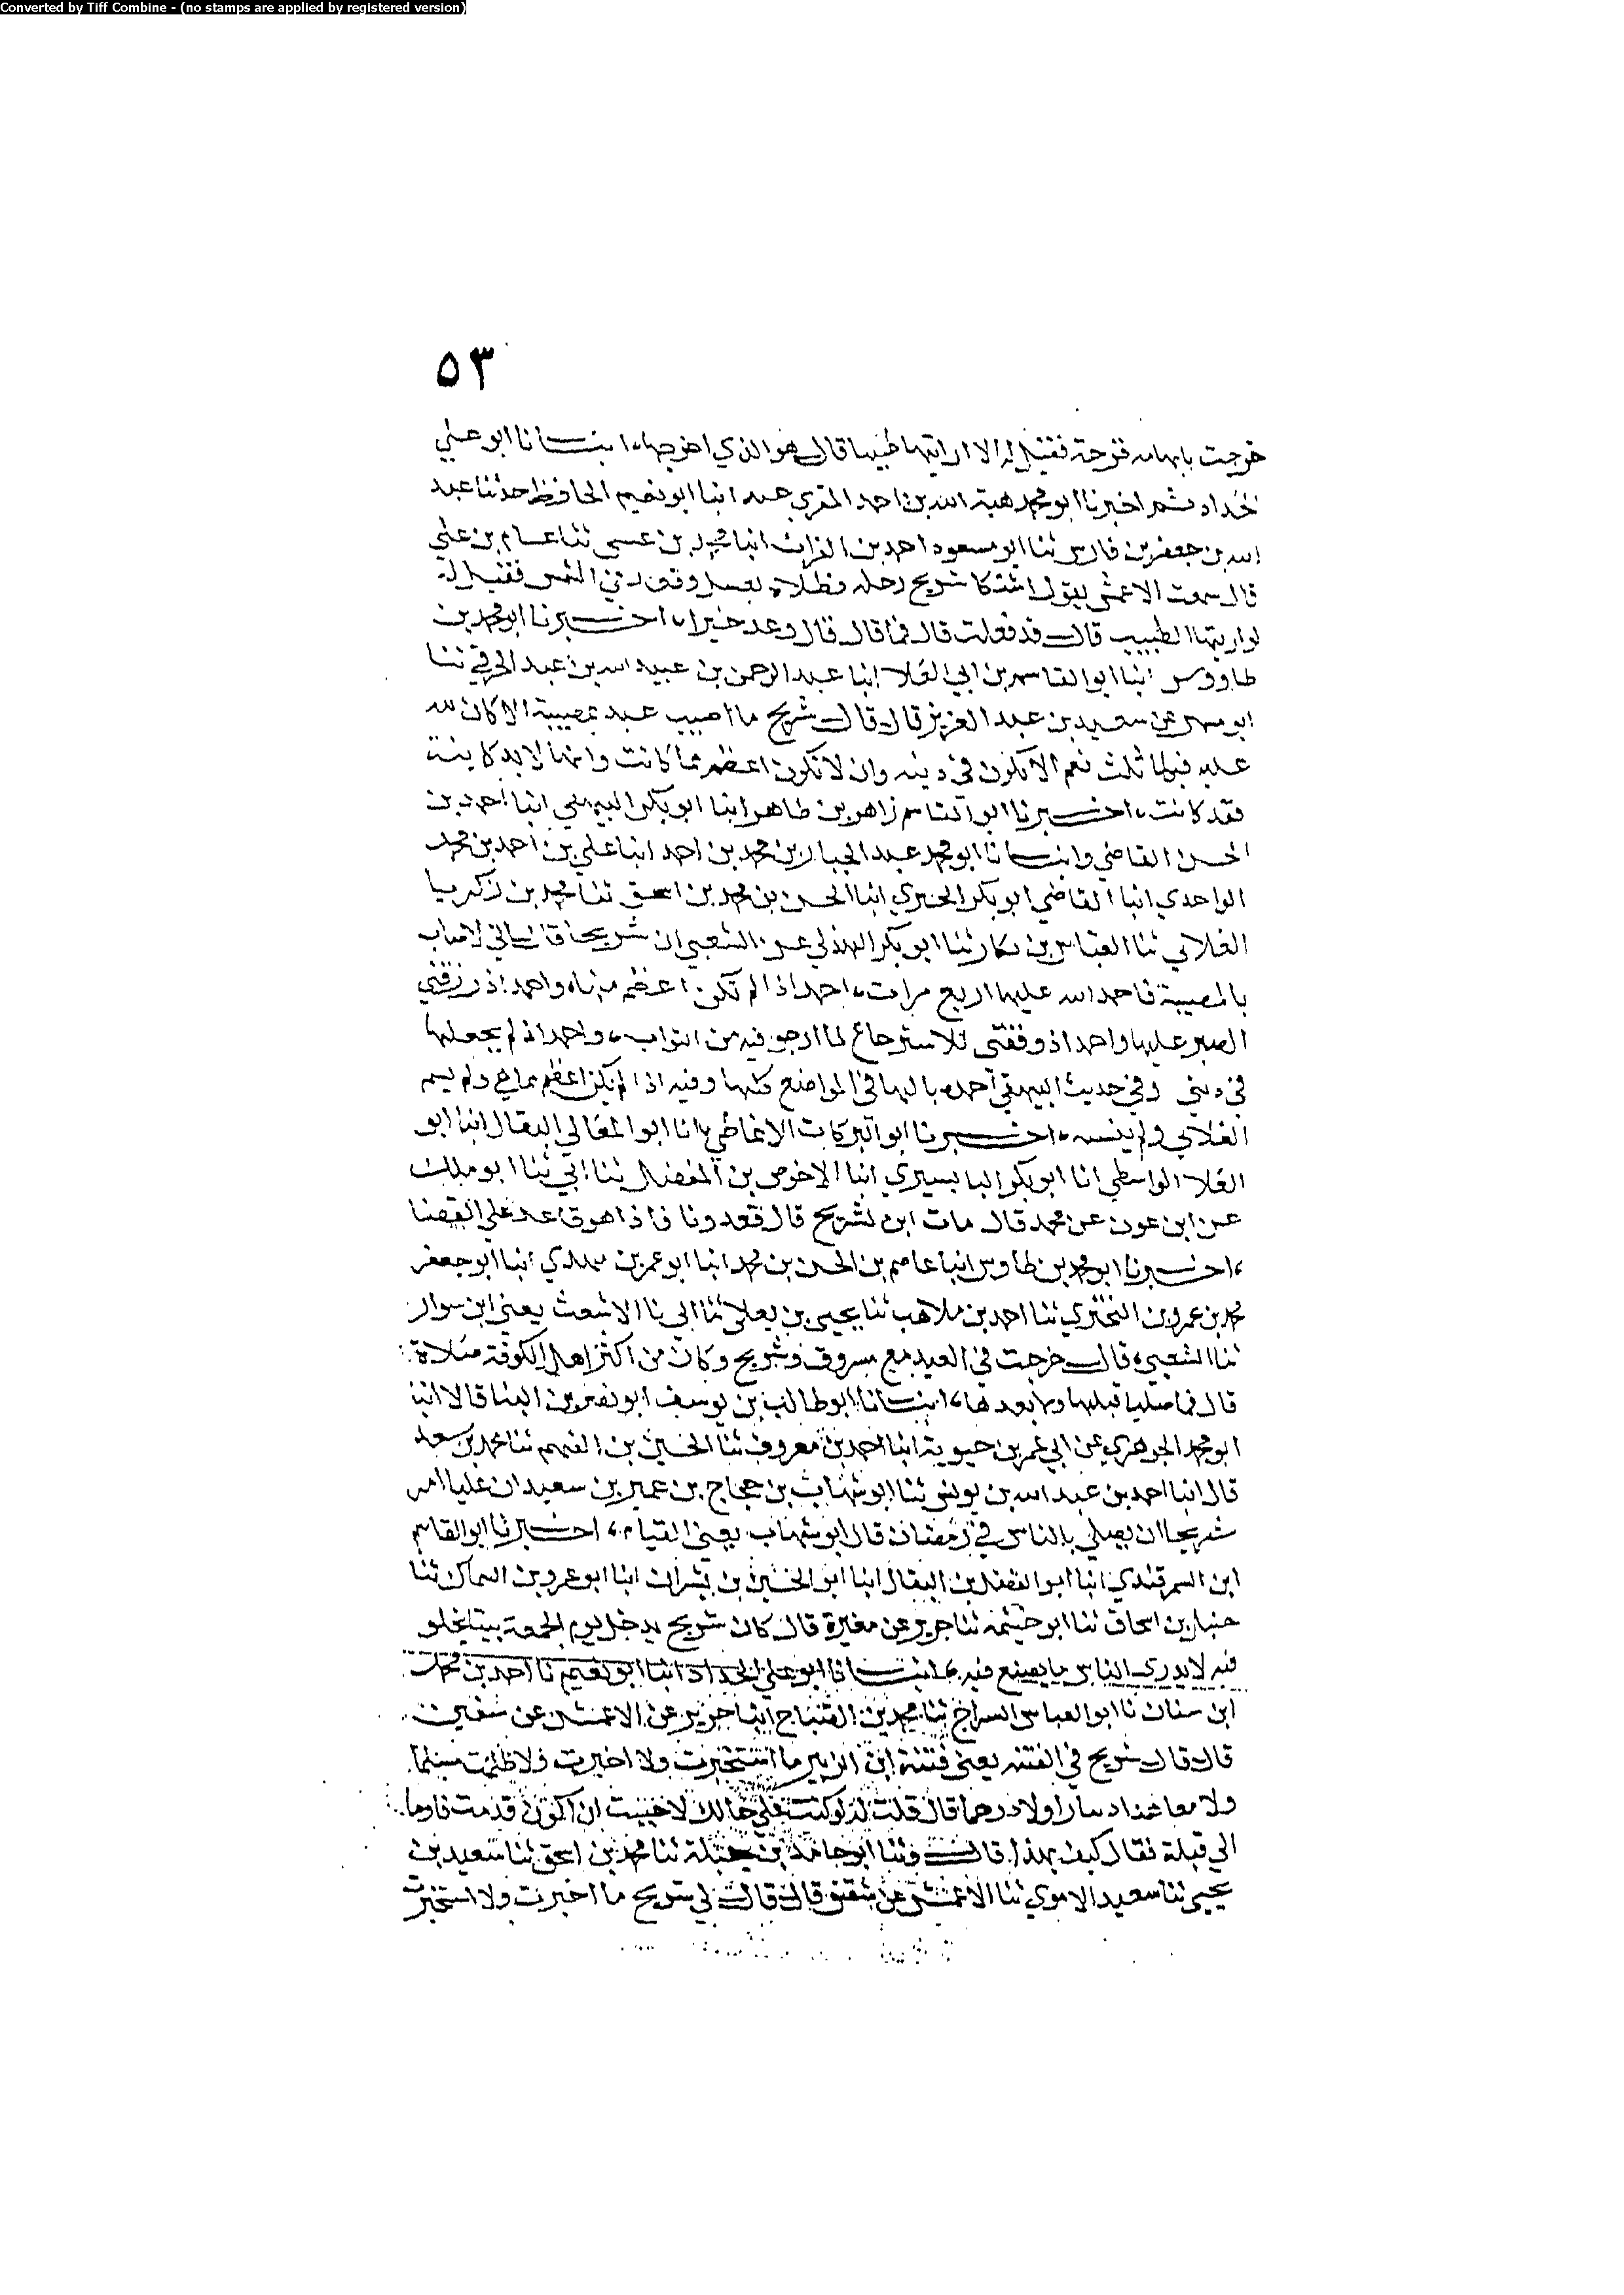 Converted by Tiff Combine - (no stamps are applied by registered version)
٥٣
خرجت بابهامه قرحة فقيل له الا اريتها طبيبا قال هو الذي اخرجها، انبانا ابو علي
الحداد ثم اخبرنا ابو محمد هبة الله بن احمد المقري عنه انبا ابو نعيم الحافظ حدثنا عبد
الله بن جعفر بن فارس ثنا ابو مسعود احمد بن الفرات انبا محمد بن عيسى ثنا عثام بن علي
قال سمعت الاعمش يقول اشتكا شريح رجله فطلاه بعسل وقعد في الشمس فقيل له
لو اريتها الطبيب قال قد فعلت قال فما قال قال وعد خيرا، اخبرنا ابو محمد بن
طاووس انبا ابو القاسم بن ابي العلا انبا عبد الرحمن بن عبيد الله بن عبد الحرفي ثنا
ابو مسهر عن سعيد بن عبد العزيز قال قال شريح ما اصيب عبد بمصيبة الا كان لله
عليه فيها ثلث نعم الا تكون في دينه وان لا تكون اعظم مما كانت وانها لابد كاينة
فقد كانت، اخبرنا ابو القاسم زاهر بن طاهر انبا ابو بكر البيهقي انبا احمد بن
الحسن القاضي وانبانا ابو محمد عبد الجبار بن محمد بن احمد انبا علي بن احمد بن محمد
الواحدي انبا القاضي ابو بكر الحيري انبا الحسن بن محمد بن اسحق ثنا محمد بن زكريا
الغلابي ثنا العباس بن بكار ثنا ابو بكر الهذلي عن الشعبي ان شريحا قال اني لاصاب
بالمصيبة فاحمد الله عليها اربع مرات، احمد اذا لم تكن اعظم منها واحمد اذ رزقني
الصبر عليها واحمد اذ وفقني للاسترجاع لما ارجو فيه من الثواب، واحمد اذ لم يجعلها
في ديني وفي حديث البيهقي احمده بالها في المواضع كلها وفيه اذا لم تكن اعظم مما هي ولم يسم
الغلابي ولم ينسبه، اخبرنا ابو البركات الانماطي انا ابو المعالي البقال انبا ابو
العلا الواسطي انا ابو بكر البابسيري انبا الاحوص بن المفضل ثنا ابي ثنا ابو
عن ابن عون عن محمد قال مات ابن لشريح قال فغدونا فاذا هو قاعد على القضا
، اخبرنا ابو محمد بن طاوس انبا عاصم بن الحسن بن محمد انبا ابو عمر بن مهدي انبا ابو جعفر
محمد بن عمرو بن البختري ثنا احمد بن ملاعب ثنا يحيى بن يعلى ثنا ابي نا الاشعث يعني ابن سوار
ثنا الشعبي، قال خرجت في العيد مع مسروق وشريح وكان من اكثر اهل الكوفة صلاة
قال فما صليا قبلها ولا بعدها، انبانا ابو طالب بن يوسف ابو نصر بن البنا قالا انبا
ابو محمد الجوهري عن ابي عمر بن حيوية انبا احمد بن معروف ثنا الحسين بن الفهم ثنا محمد بن سعد
قال انبا احمد بن عبد الله بن يونس ثنا ابو شهاب بن حجاج بن عمير بن سعيد ان عليا امر
شريحا ان يصلي بالناس في رمضان قال ابو شهاب يعني القيام، اخبرنا ابو القاسم
ابن السمرقندي انبا ابو الفضل بن البقال انبا ابو الحسين بن بشران انبا ابو عمرو بن السماك ثنا
حنبل بن اسحاق ثنا ابو خيثمة ثنا جرير عن مغيرة قال كان شريح يدخل يوم الجمعة بيتا يخلو
فيه لا يدري الناس ما يصنع فيه، انبانا ابو علي الحداد انبا ابو نعيم نا احمد بن محمد
ابن سنان نا ابو العباس السراج ثنا محمد بن الصباح انبا جرير عن الاعمش عن شقيق
قال قال شريح في الفتنة يعني فتنة ابن الزبير ما استخبرت ولا اخبرت ولا ظلمت مسلما
ولا معاهدا دينارا ولا درهما قال قلت له لو كنت على حالك لاحببت ان اكون قد مت فاوما
الى قلبه فقال كيف بهذا، قال وثنا ابو حامد بن جبلة ثنا محمد بن اسحق ثنا سعيد بن
يحيى ثنا سعيد الاموي ثنا الاعمش عن شقيق قال قال لي شريح ما اخبرت ولا استخبرت